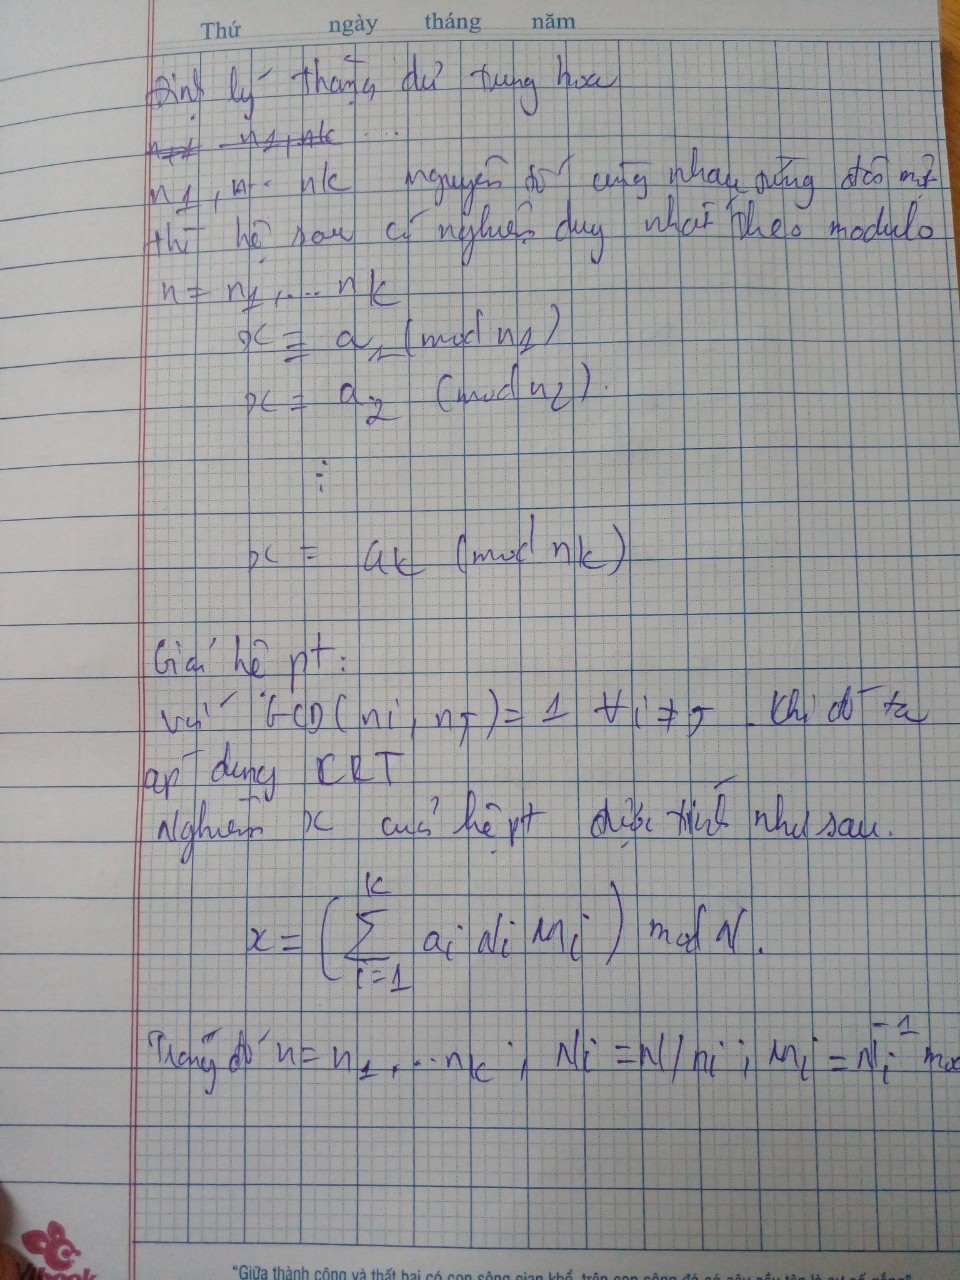 Thứ ngày tháng năm
Định lý thặng dư trung hoa
n1, ... nk nguyên tố cùng nhau từng đôi một
thì hệ sau có nghiệm duy nhất theo modulo
n = n1, .... nk
x ≡ a1 (mod n1)
x = a2 (mod n2).
⋮
x = ak (mod nk)
Giải hệ pt:
với GCD(ni, nj) = 1 ∀i ≠ j. Khi đó ta
áp dụng CRT
Nghiệm x của hệ pt được tính như sau.
x = (∑_{i=1}^{k} ai Ni Mi) mod N.
Trong đó n = n1, ... nk; Ni = N/ni; Mi = Ni^-1 mod
"Giữa thành công và thất bại có con sông gian khổ, trên con sông đó có